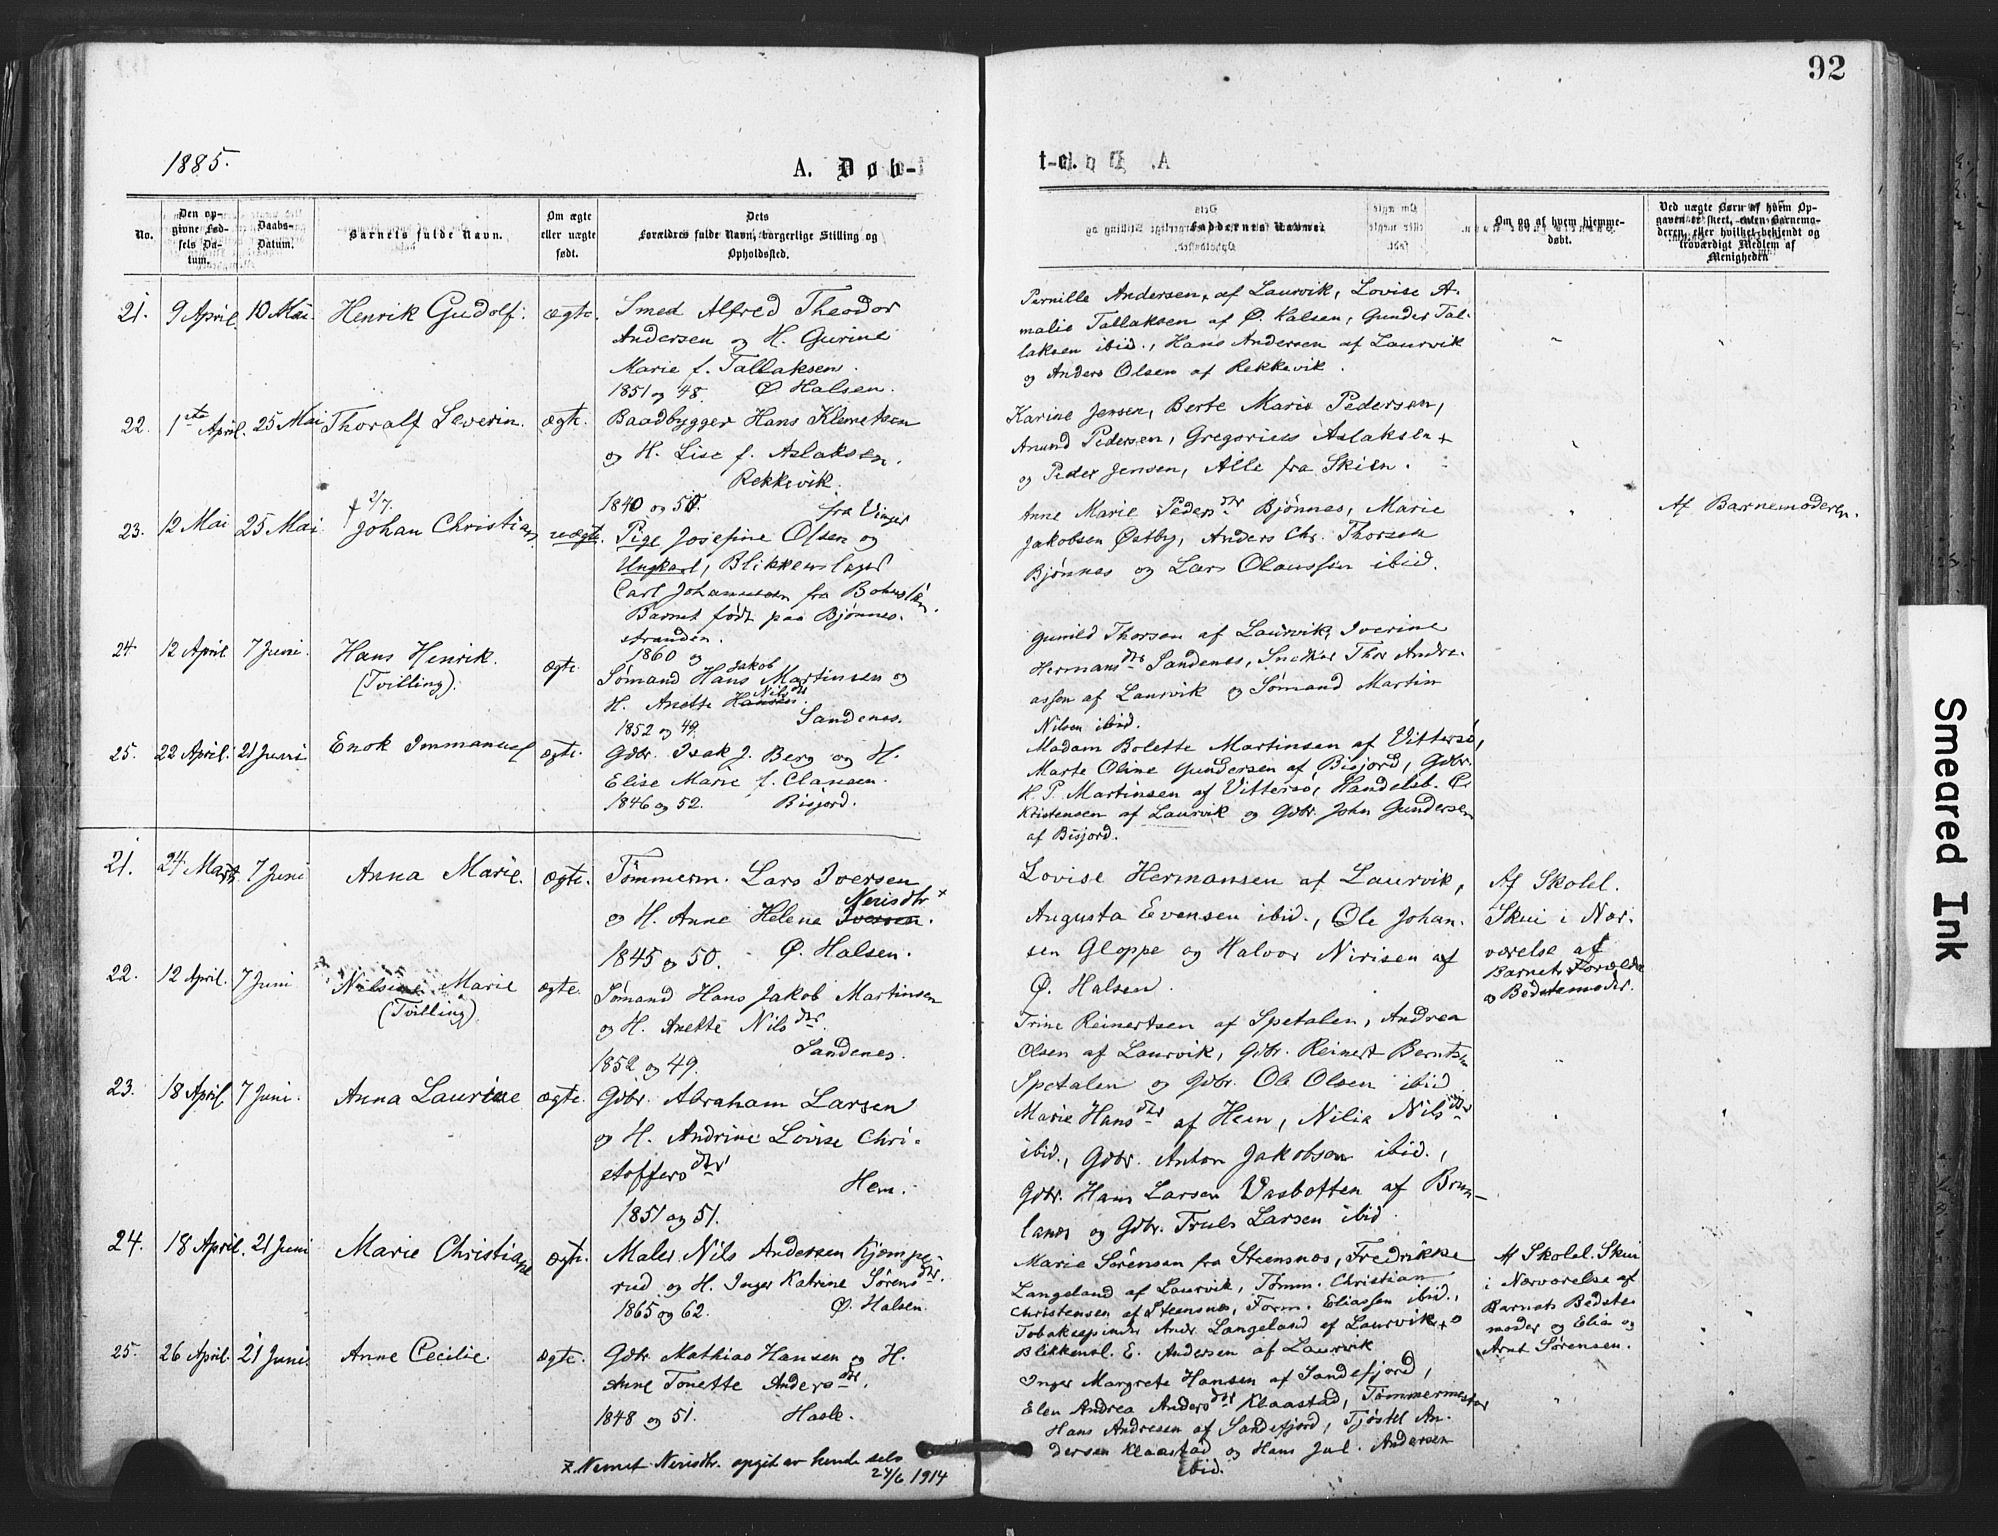 92
1885.
A. Døb-
t-e.
No.
Den op-
givne Fød-
sels Da-
tum.
Daabs-
Datum.
Barnets fulde Navn.
Om ægte
eller uægte
født.
Dets
Forældres fulde Navn, borgerlige Stilling og
Opholdssted.
Faddernes Navne
Om og af hvem hjemme-
døbt.
Ved uægte Børn af hvem Op-
gaven er skeet, enten Barnemo-
deren, eller hvilket bekjendt og
troværdigt Medlem af
Menigheden
21. 9 April 10 Mai. Henrik Gudolf. ægte.
Smed Alfred Theodor
Andersen og H. Gurine
Marie f. Tallaksen.
1851 og 48. Ø Halsen.
Pernille Andersen, af Laurvik, Lovise A-
malie Tallaksen af Ø. Halsen, Gunder Tal-
laksen ibid., Hans Andersen af Laurvik
og Anders Olsen af Rekkevik.
22. 1ste April. 25 Mai Thoralf Severin. ægte.
Baadbygger Hans Klemetsen
og H. Lise f. Aslaksen.
Rekkevik.
1840 og 50.
Karine Jensen, Berte Marie Pedersen,
Anund Pedersen, Gregorius Aslaksen
og Peder Jensen, Alle fra Skien.
23. 12 Mai 25 Mai † 2/7. Johan Christian uægte.
fra Vinger
Pige Josefine Olsen og
Ungkarl, Blikkenslager
Carl Johannessen fra Bohuslän.
Barnet født paa Bjønnes-
stranden.
1860 og
Anne Marie Pedersdtr Bjønnes, Marie
Jakobsen Østby, Anders Chr. Thorsen
Bjønnes og Lars Olaussen ibid.
Af Barnemoderen.
24. 12 April 7 Juni. Hans Henrik.
(Tvilling). ægte.
Jakob
Sømand Hans Martinsen og
Nilsdtr
H. Anette Hansen.
1852 og 49. Sandenes.
Gunild Thorsen af Laurvik, Iverine
Hermansdtr Sandenes, Snedker Thor Andre-
assen af Laurvik og Sømand Martin
Nilsen ibid.
25. 22 April. 21 Juni Enok Immanuel ægte.
Gdbr. Isak J. Berg og H.
Elise Marie f. Clausen.
1846 og 52. Bisjord.
Madam Bolette Martinsen af Vittersø,
Marte Oline Gundersen af Bisjord, Gdbr.
H. P. Martinsen af Vittersø, Handelsb. C.
Kristensen af Laurvik og Gdbr. John Gundersen
af Bisjord.
21. 24 Marts 7 Juni Anna Marie. ægte.
Tømmerm. Lars Iversen
Nerisdtr x
og H. Anne Helene Iversen.
1845 og 50. Ø. Halsen.
Lovise Hermansen af Laurvik,
Augusta Evensen ibid., Ole Johan-
sen Gloppe og Halvor Nirisen af
Ø. Halsen.
Af Skolel.
Skui i Nær-
værelse af
Barnets Forældre
og Bedstemoder.
22. 12 April. 7 Juni Nilsine Marie
(Tvilling). ægte.
Sømand Hans Jakob Martinsen
og H. Anette Nilsdtr.
Sandenes.
1852 og 49.
Trine Reinertsen af Spetalen, Andrea
Olsen af Laurvik, Gdbr. Reinert Berntsen
Spetalen og Gdbr. Ole Olsen ibid
23. 18 April 7 Juni. Anna Laurine ægte.
Gdbr. Abraham Larsen
og H. Andrine Lovise Chri-
stoffersdtr
Hem.
1851 og 51.
Marie Hansdtr af Hem, Nilia Nilsdtr
ibid., Gdbr. Anton Jakobsen ibid.,
Gdbr. Hans Larsen Vasbotten af Brun-
lanes og Gdbr. Truls Larsen ibid
24. 18 April. 21 Juni Marie Christiane ægte.
Maler Nils Andersen Kjømpe-
rud og H. Inger Katrine Sørensdtr.
1865 og 62. Ø. Halsen.
Marie Sørensen fra Steensnes, Fredrikke
Langeland af Laurvik, Tømm. Christian
Christensen af Steensnes, Form. Eliassen ibid.,
Tobakspinder Andr. Langeland af Laurvik og
Blikkensl. E. Andersen af Laurvik
Af Skolel. Skui
i Nærværelse af
Barnets Bedste-
moder og Elia og
Arnt Sørensen.
25. 26 April. 21 Juni. Anne Cecilie. ægte.
Gdbr Mathias Hansen og H.
Anne Tonette Andersdtr.
1848 og 51. Hasle.
Inger Margrete Hansen af Sandefjord,
Elen Andrea Andersdtr Klaastad, Tømmermester
Hans Andresen af Sandefjord, Tjøstel An-
dersen Klaastad og Hans Jul. Andersen
ibid.
x Navnet Nerisdtr. opgit av hende selv
24/6 1914
Smeared Ink